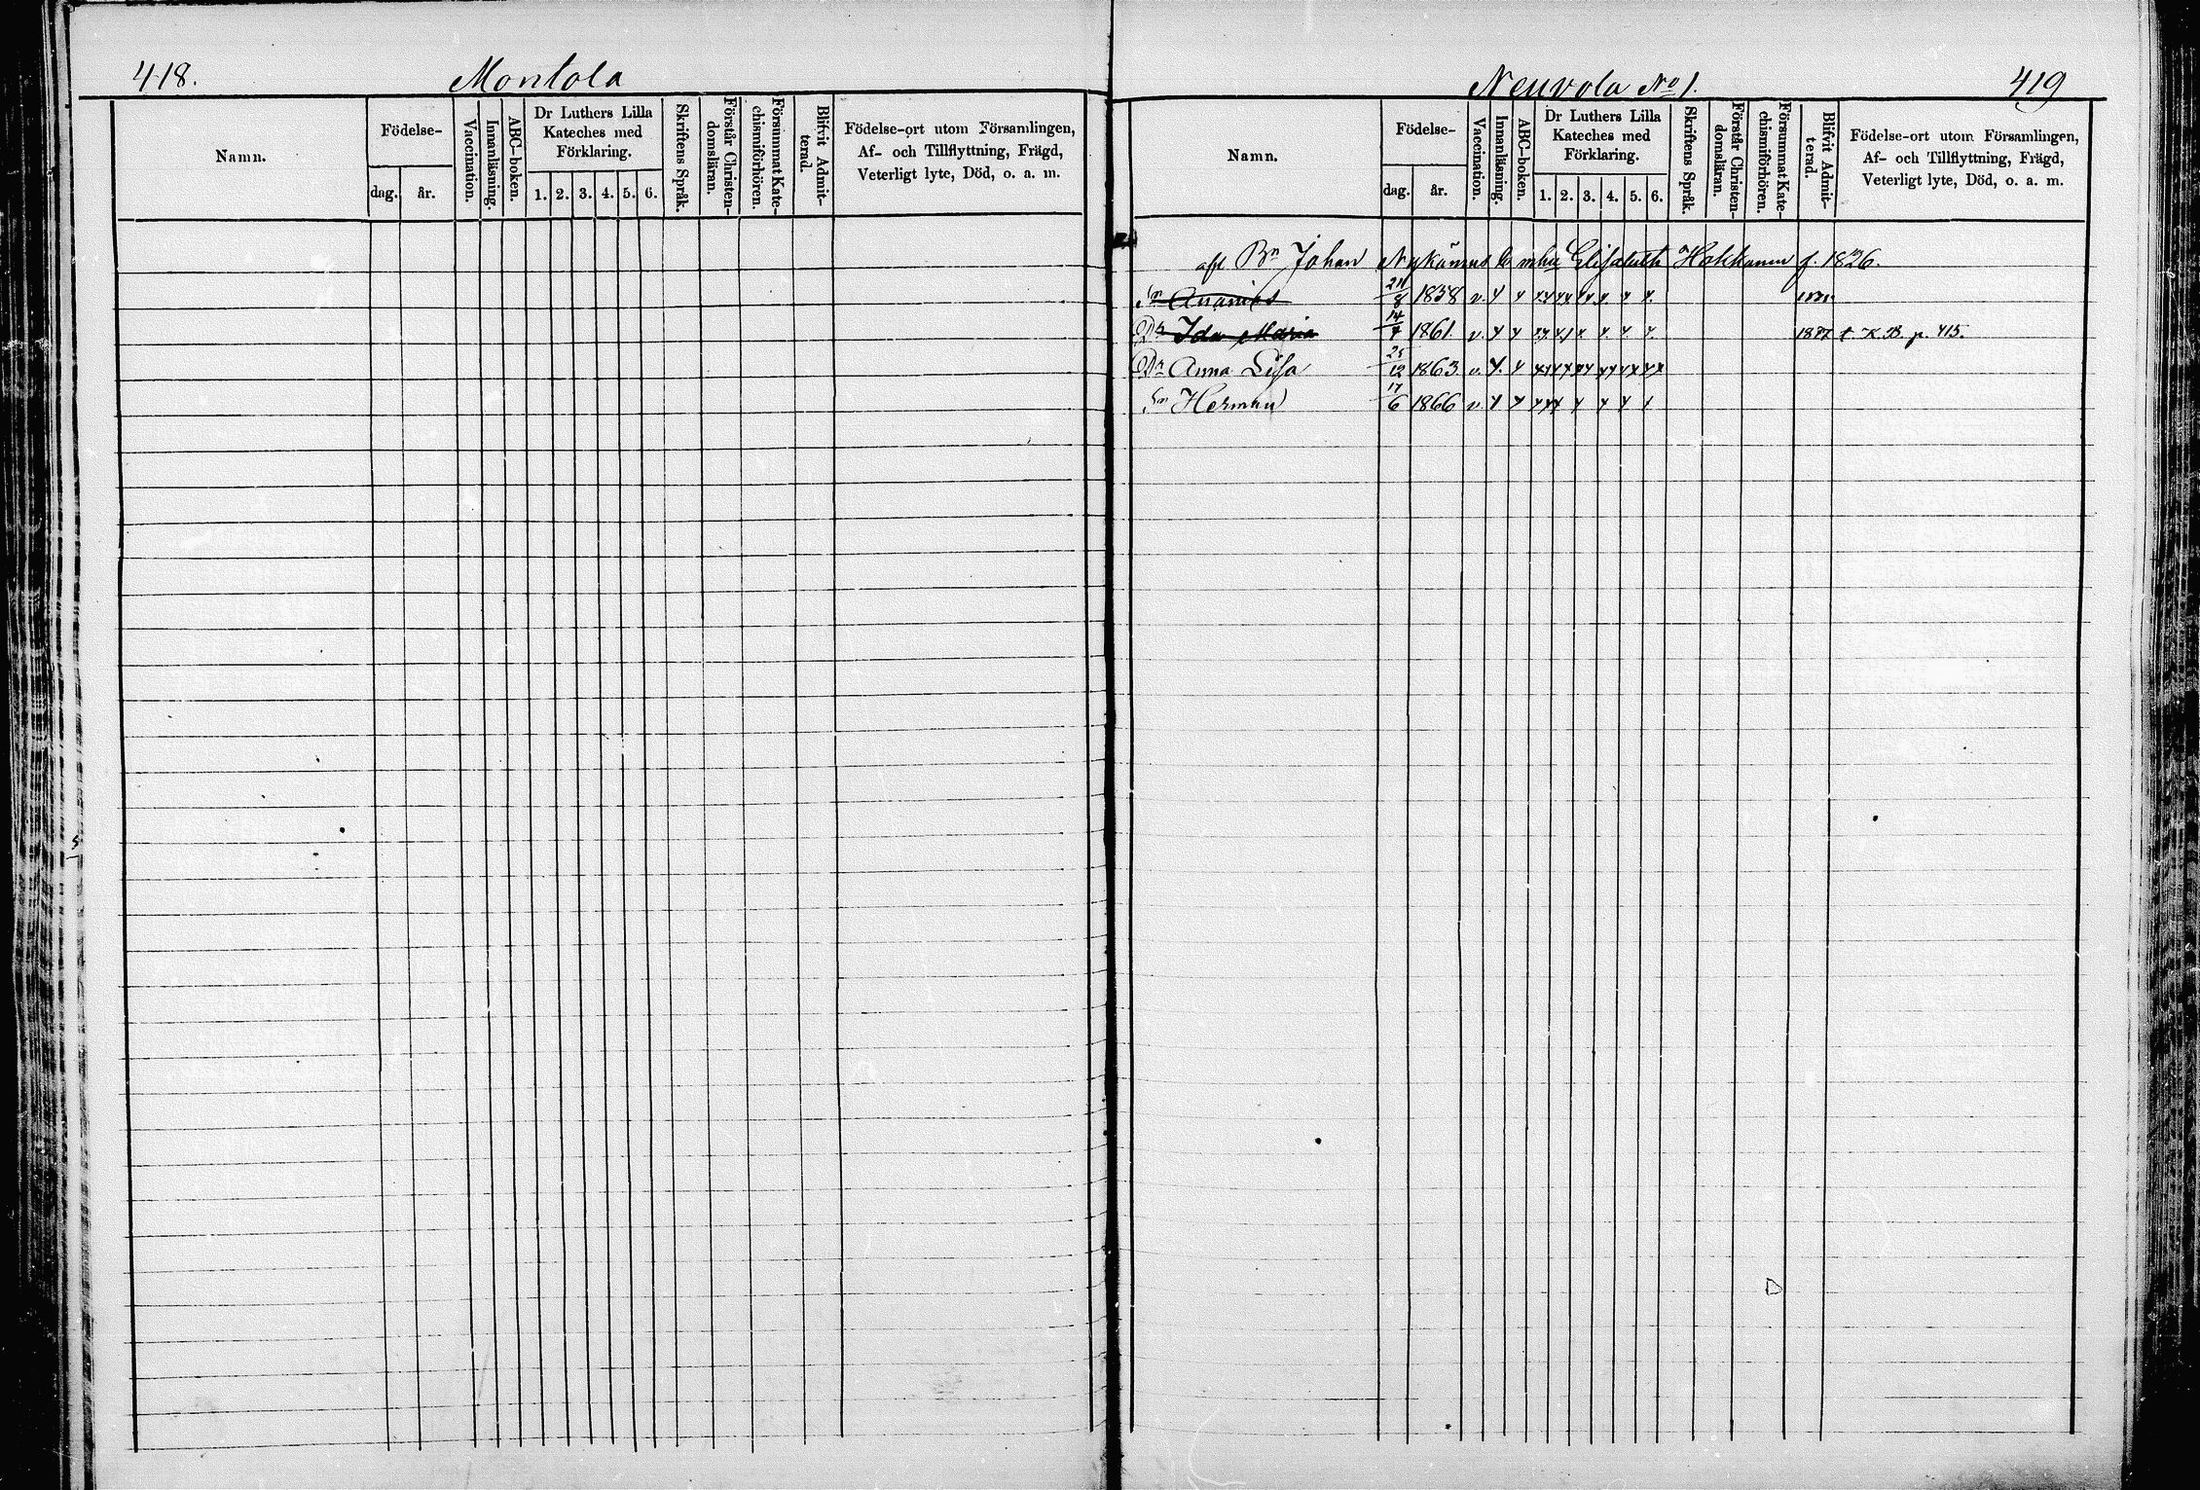 418.
Montola
Namn.
Födelse-
dag.
år.
Vaccination.
Innanläsning.
ABC-boken.
Dr Luthers Lilla
Kateches med
Förklaring.
1. 2. 3. 4. 5. 6.
Skriftens Språk.
Förstår Christen-
domsläran.
Försummat Kate-
chismiförhören.
Blifvit Admit-
terad.
Födelse-ort utom Församlingen,
Af- och Tillflyttning, Frägd,
Veterligt lyte, Död, o. a. m.
Neuvola No 1.
419
Namn.
Födelse-
dag.
år.
Vaccination.
Innanläsning.
ABC-boken.
Dr Luthers Lilla
Kateches med
Förklaring.
1. 2. 3. 4. 5. 6.
Skriftens Språk.
Förstår Christen-
domsläran.
Försummat Kate-
chismiförhören.
Blifvit Admit-
terad.
Födelse-ort utom Församlingen,
Af- och Tillflyttning, Frägd,
Veterligt lyte, Död, o. a. m.
Bn Johan Nykänens Elisabeth Hakkanen f. 1826.
Sn Ananias 8 1858 v.
Dr Ida Maria 14/4 1861 v. t. K.B. p. 415.
Dr Anna Lisa 25/12 1863 v.
Sn Herman 17/6 1866 v.